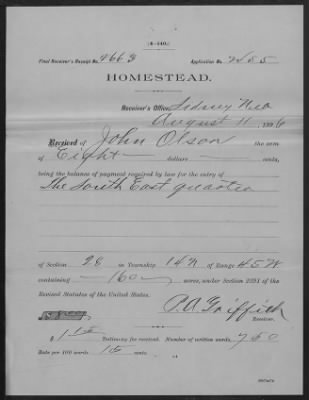 (4-140.)
Final Receiver's Receipt No. 4663 Application No. 2455
HOMESTEAD.
Receiver's Office, Sidney Neb
August 11, 1896
Received of John Olson the sum
of Eight dollars cents,
being the balance of payment required by law for the entry of
The South East quarter
of Section 28 in Township 14 N of Range 45 W
containing 160 acres, under Section 2291 of the
Revised Statutes of the United States.
P.A. Griffith
Receiver.
$ Testimony fee received. Number of written words, 760
Rate per 100 words 15 cents.